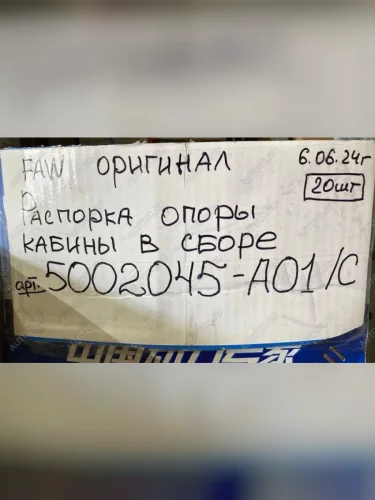 FAW ОРИГИНАЛ 6.06.24г
20шт
РАСПОРКА ОПОРЫ
КАБИНЫ В СБОРЕ
арт. 5002045-A01/C
中国